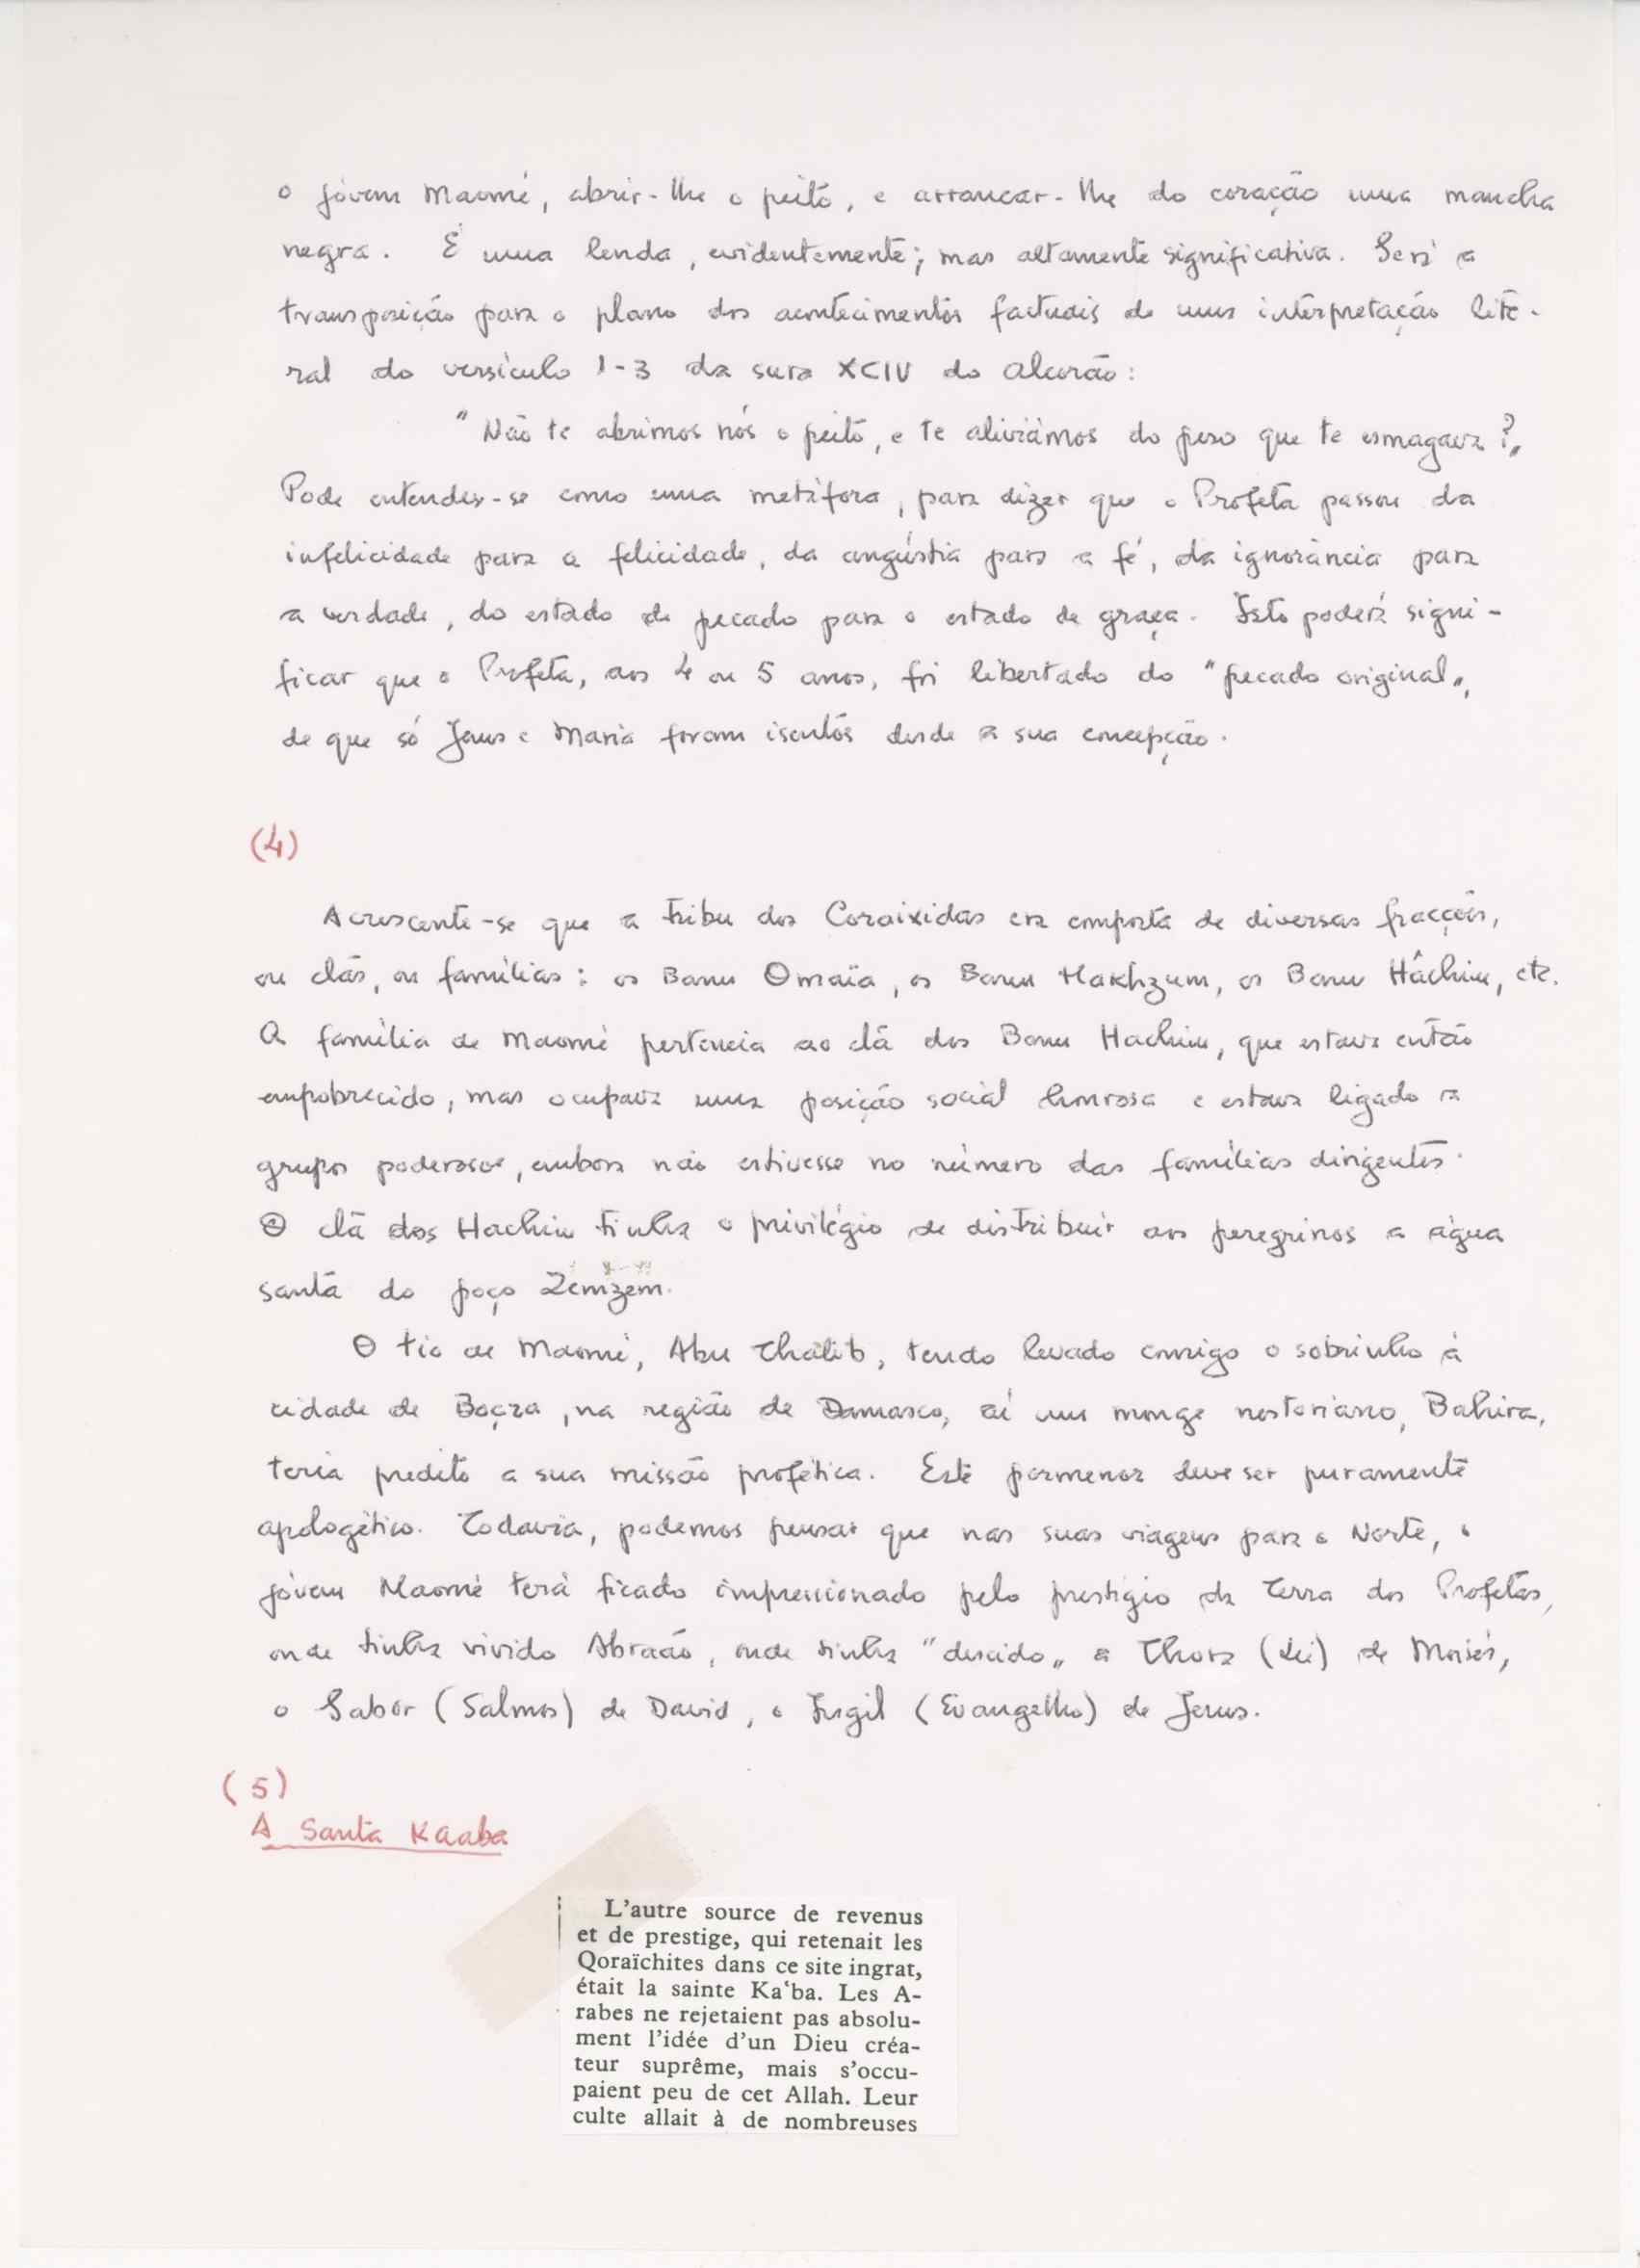 o jóvem Maomé, abrir-lhe o peito, e arrancar-lhe do coração uma mancha
negra. É uma lenda, evidentemente; mas altamente significativa. Será a
transposição para o plano dos acontecimentos factuais de uma interpretação lite-
ral do versículo 1-3 da sura XCIV do Alcorão:
"Não te abrimos nós o peito, e te aliviámos do peso que te esmagava?"
Pode entender-se como uma metáfora, para dizer que o Profeta passou da
infelicidade para a felicidade, da angústia para a fé, da ignorância para
a verdade, do estado de pecado para o estado de graça. Isto poderá signi-
ficar que o Profeta, aos 4 ou 5 anos, foi libertado do "pecado original",
de que só Jesus e Maria foram isentos desde a sua concepção.
(4)
Acrescente-se que a tribu dos Coraixidas era composta de diversas fracções,
ou clãs, ou famílias: os Banu Omaïa, os Banu Makhzum, os Banu Hâchim, etc.
A família de Maomé pertencia ao clã dos Banu Hachim, que estava então
empobrecido, mas ocupava uma posição social honrosa e estava ligado a
grupos poderosos, embora não estivesse no número das famílias dirigentes.
O clã dos Hachim tinha o privilégio de distribuir aos peregrinos a água
santa do poço Zemzem.
O tio de Maomé, Abu Thalib, tendo levado comigo o sobrinho à
cidade de Boçra, na região de Damasco, aí um monge nestoriano, Bahira,
teria predito a sua missão profética. Este pormenor deve ser puramente
apologético. Todavia, podemos pensar que nas suas viagens para o Norte, o
jóvem Maomé terá ficado impressionado pelo prestígio da Terra dos Profetas,
onde tinha vivido Abraão, onde tinha "descido" a Thora (Lei) de Moisés,
o Sabor (Salmos) de David, o Ingil (Evangelho) de Jesus.
(5)
A Santa Kaaba
L'autre source de revenus
et de prestige, qui retenait les
Qoraïchites dans ce site ingrat,
était la sainte Ka‛ba. Les A-
rabes ne rejetaient pas absolu-
ment l'idée d'un Dieu créa-
teur suprême, mais s'occu-
paient peu de cet Allah. Leur
culte allait à de nombreuses